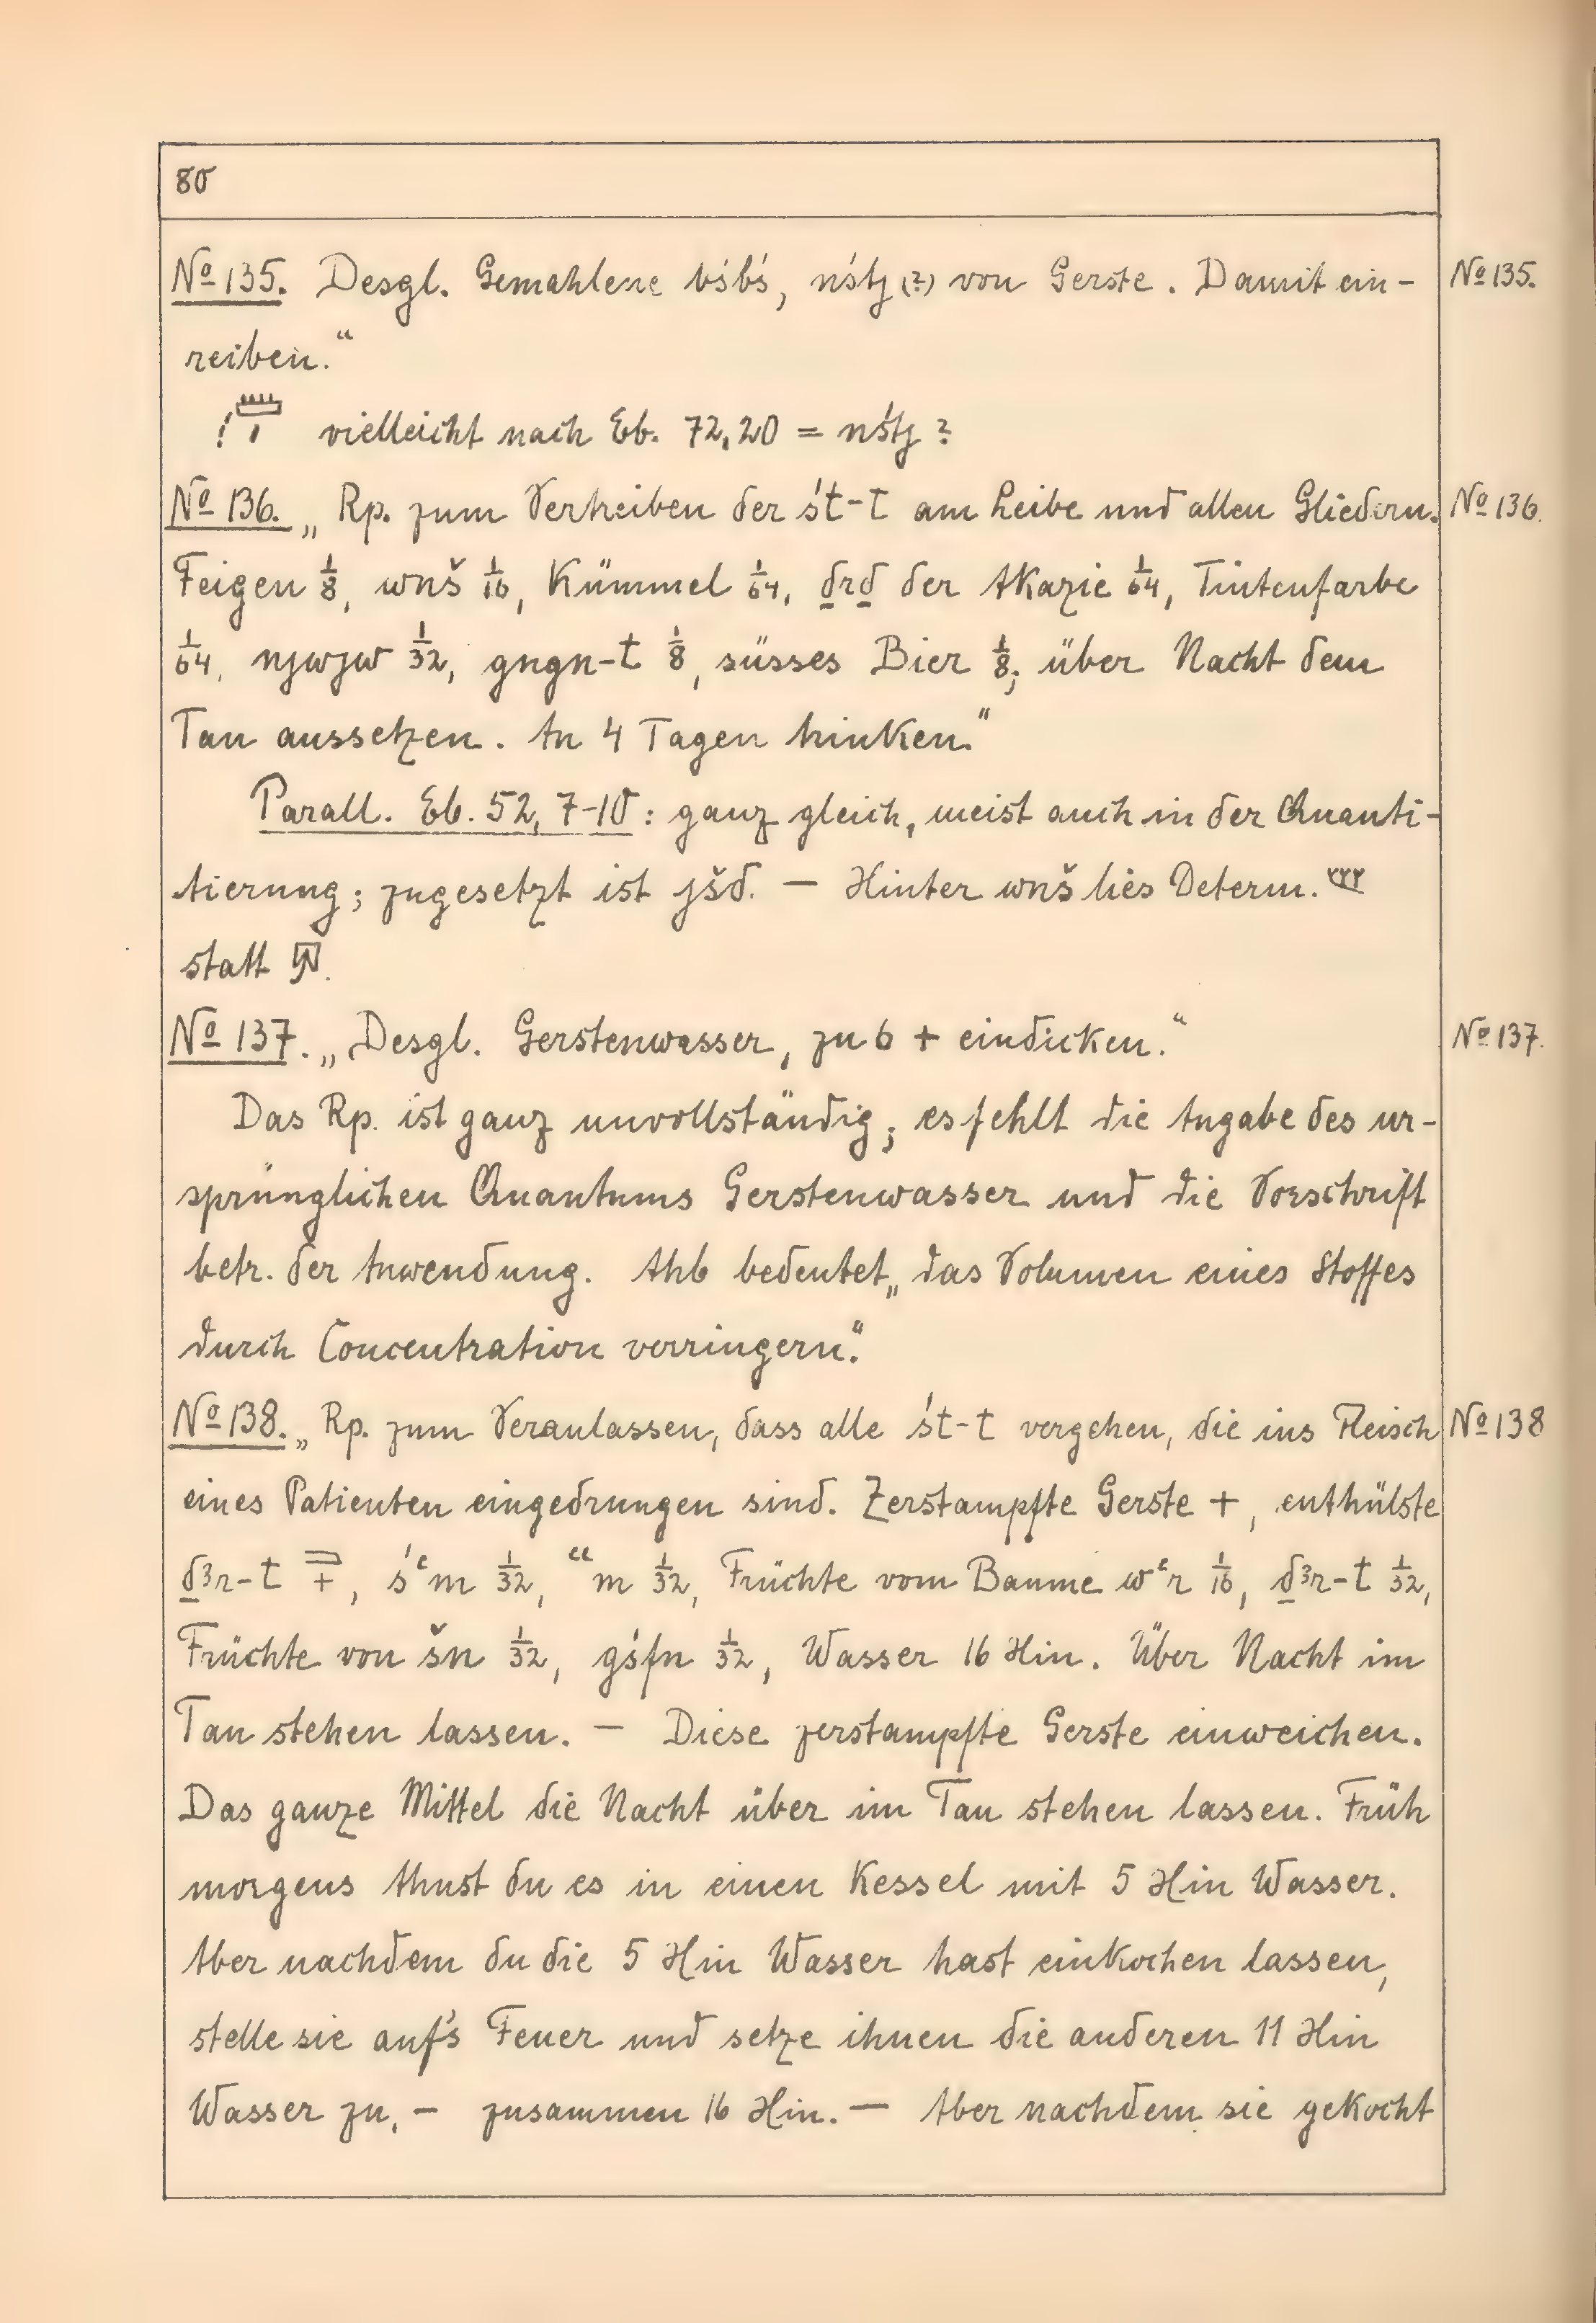 80
No 135. Desgl. Gemahlene bśbś, nśtj (?) von Gerste. Damit ein- No 135.
reiben.“
vielleicht nach Eb. 72,20 = nśtj ?
No 136. „Rp. zum Vertreiben der śt-t am Leibe und allen Gliedern. No 136.
Feigen 1/8, wnš 1/16, Kümmel 1/64, ḏrḏ der Akazie 1/64, Tintenfarbe
1/64, njwjw 1/32, gngn-t 1/8, süsses Bier 1/8; über Nacht dem
Tau aussetzen. An 4 Tagen trinken.“
Parall. Eb. 52, 7-10: ganz gleich, meist auch in der Quanti-
tierung; zugesetzt ist jšd. — Hinter wnš lies Determ.
statt
No 137. „Desgl. Gerstenwasser, zu 6 + eindicken.“ No 137.
Das Rp. ist ganz unvollständig; es fehlt die Angabe des ur-
sprünglichen Quantums Gerstenwasser und die Vorschrift
betr. der Anwendung. Ahb bedeutet „das Volumen eines Stoffes
durch Concentration verringern“.
No 138. „Rp. zum Veranlassen, dass alle śt-t vergehen, die ins Fleisch No 138
eines Patienten eingedrungen sind. Zerstampfte Gerste +, enthülste
ḏꜣr-t, śꜥm 1/32, ꜥꜥm 1/32, Früchte vom Baume wꜥr 1/16, ḏꜣr-t 1/32,
Früchte von šn 1/32, gśfn 1/32, Wasser 16 Hin. Über Nacht im
Tau stehen lassen. — Diese zerstampfte Gerste einweichen.
Das ganze Mittel die Nacht über im Tau stehen lassen. Früh
morgens thust du es in einen Kessel mit 5 Hin Wasser.
Aber nachdem du die 5 Hin Wasser hast einkochen lassen,
stelle sie auf's Feuer und setze ihnen die anderen 11 Hin
Wasser zu, — zusammen 16 Hin. — Aber nachdem sie gekocht